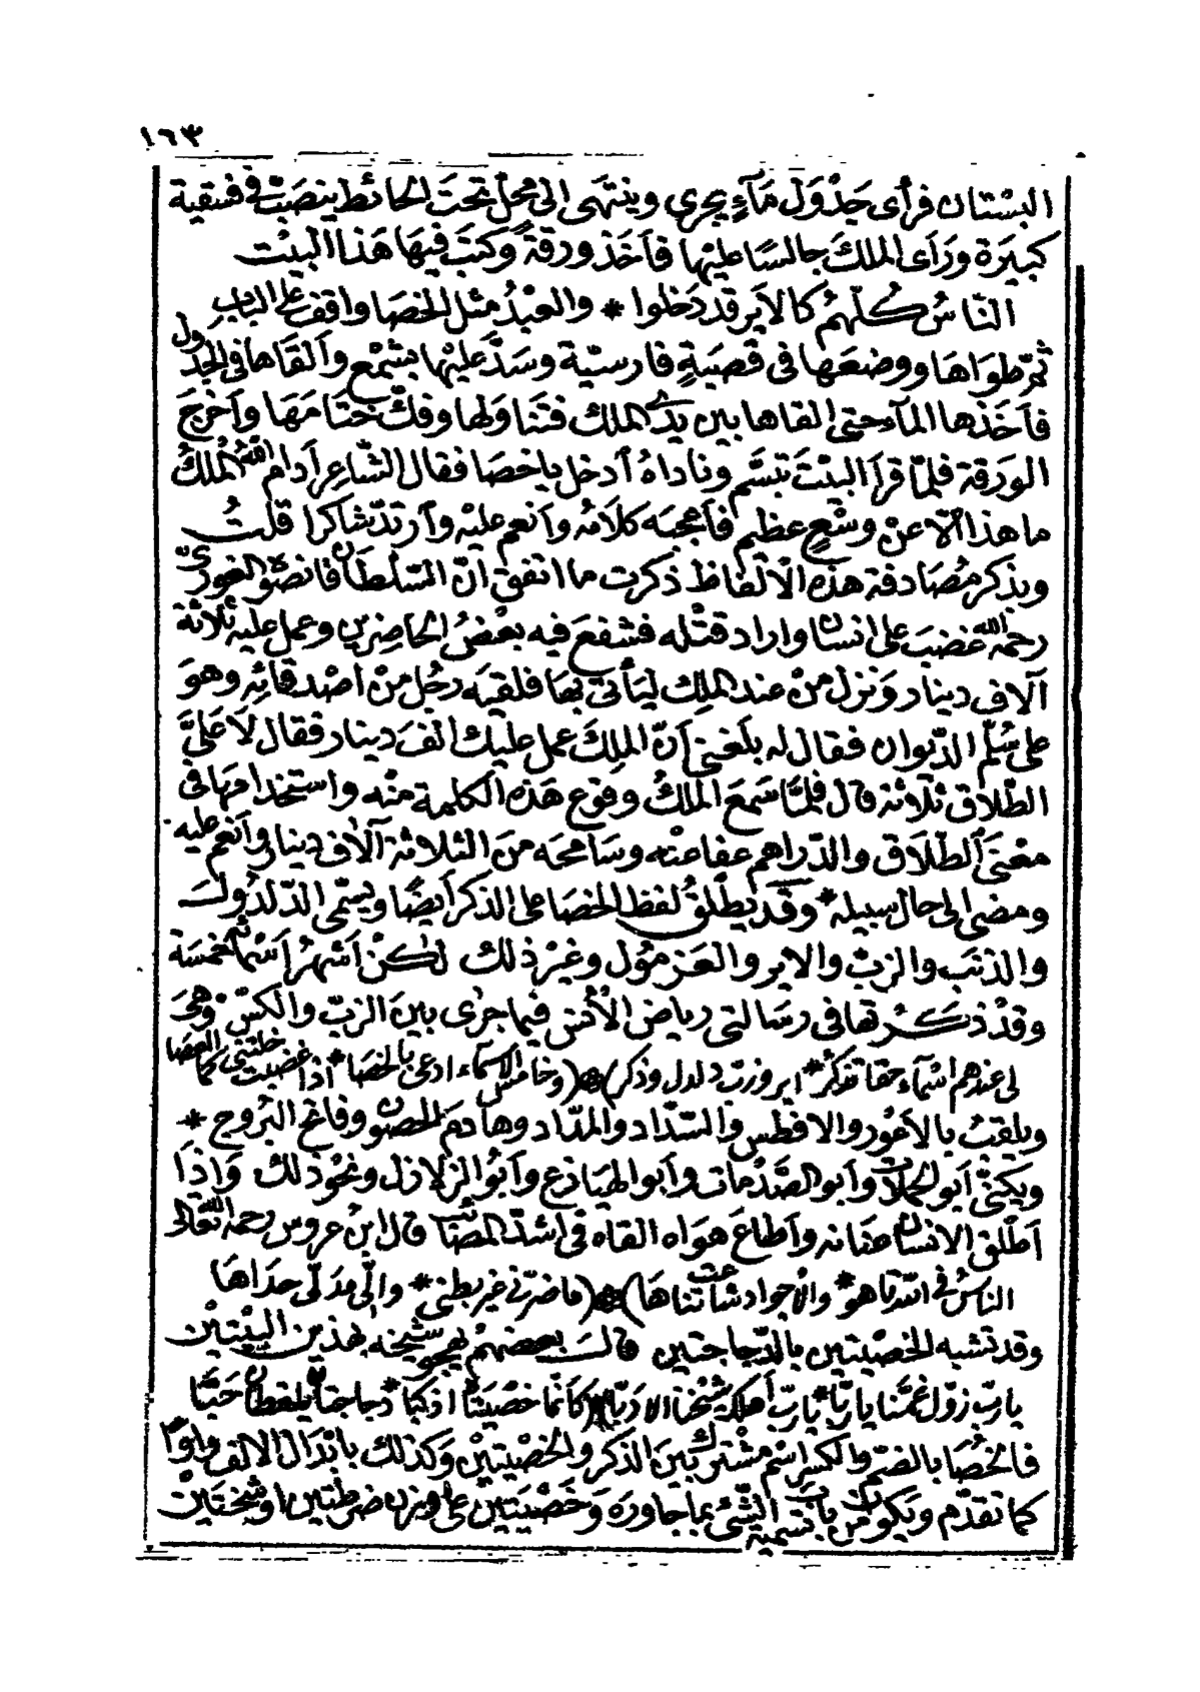 ١٦٣
البسْتان فرأى جَدْوَل مَآءٍ يجرى وينتهى الى محلٍّ تحتَ الحائط ينصَبّ فى فسقية
كبيرَة ورَاى الملكَ جالسًا عليها فأخَذ ورقةً وكتَبَ فيهَا هَذا البيْت
النّاسُ كُلّهمُ كالاَير قد دَخلوا * والعبْدُ مثل الخصَا واقف على الباب
ثمّ طوَاهَا ووضعَها فى قصَبَةٍ فارسيّة وسَدَّ عليْها بشمْعٍ وألقاها فى الجدول
فأخَذها المآء حتى القاها بين يدَىِ الملك فتَناولها وفكّ ختَامَهَا وأخرجَ
الورَقة فلمّا قرأ البيْتَ تبَسَّم وناداهُ أدخل ياخصَا فقال الشّاعِر أدام الله الملكُ
ما هذا الّا عنْ وسْعٍ عظيم فأعجبَه كلاَمُه وأنعم عليْه وأرتدّ شاكرا قلْتُ
وبذكر مُصَادفة هذه الألفاظ ذكرت ما اتفق انّ السّلطان قانصوْه الغورىّ
رحمه الله غضبَ على انسان واراد قتْله فشفعَ فيه بعْضُ الحاضِرين وعمل عليْه ثلاثة
آلاف دينار وَنزل منْ عند الملِك ليَأتىَ بهَا فلقيَه رجُل منْ أصْدقائِه وهوَ
على سُلّم الدّيوان فقال له بلغنى أنّ الملِكَ عمل عليك الفَ دينار فقال لَا علىَّ
الطّلاق ثلاثة قال فلمّا سَمعَ الملكُ وقوع هَذه الكلمة منْه واستخدامهَا فى
معْنَى الطّلاق والدّراهم عفا عنْه وسَامحَه منَ الثلاثة آلاف دينار وأنعم عليه
ومضى الى حال سبيله * وقدْ يُطْلقُ لفظ الخصَا على الذكر أيضًا ويسَمّى الدّلدُول
والذنَب والزبّ والاير والعَزموُل وغيْر ذلك لكنْ أشهرُ أسْمائه خمسَة
وقدْ ذكرْتها فى رسَالتى رياض الأنْس فيما جرَى بينَ الزبّ والكسّ وهىَ
لى عندهم اسْمآء حقا تذكرُ * اير وزبّ دلدل وذكر (وخامسُ الاسمآء ادعى بالخصَا * اذا غضبت خلتنى كما العصَا
ويلقبُ بالاَعْور والافطس والسّدّاد والمدّاد وهادم الحصون وفاتح البُروج *
ويكنّى أبو الحملات وأبو الصّدْمات وأبو الهيَازع وأبوُ الزلازل ونحْو ذلك وَاذَا
أطْلق الانسَان عنانه وأطاعَ هوَاه القاه فى أشدّ المصَائب قال ابن عروس رحمه الله تعالى
الناسُ فى اللّه تاهوُ * والأجواد شاعت ثناها (ما ضرّنى غير بطنى * والّى مدَلّى حداها
وقد تشبه الخصْيتين بالدّجاجتين قالَ بعضهُمْ يهجو شيْخه بهذين البيْتَيْن
يا ربّ زوّل غمّنا ياربّا * ياربّ أهلك شيْخنا الادبّا (كأنما خصْيَتاهُ اذكبا * دجاجتان يلقطان حَبّا
فالخُصَا بالضمّ والكسر اسْم مشْترك بيْنَ الذكَر والخصْيتيْن وَكذلك بابْدَال الالف واوًا
كما تقدّم ويَكون منْ باب تسْمية الشّئ بما جاورَه وَخصْيَتَيْن على وزن ضرطتين او شيختيْن